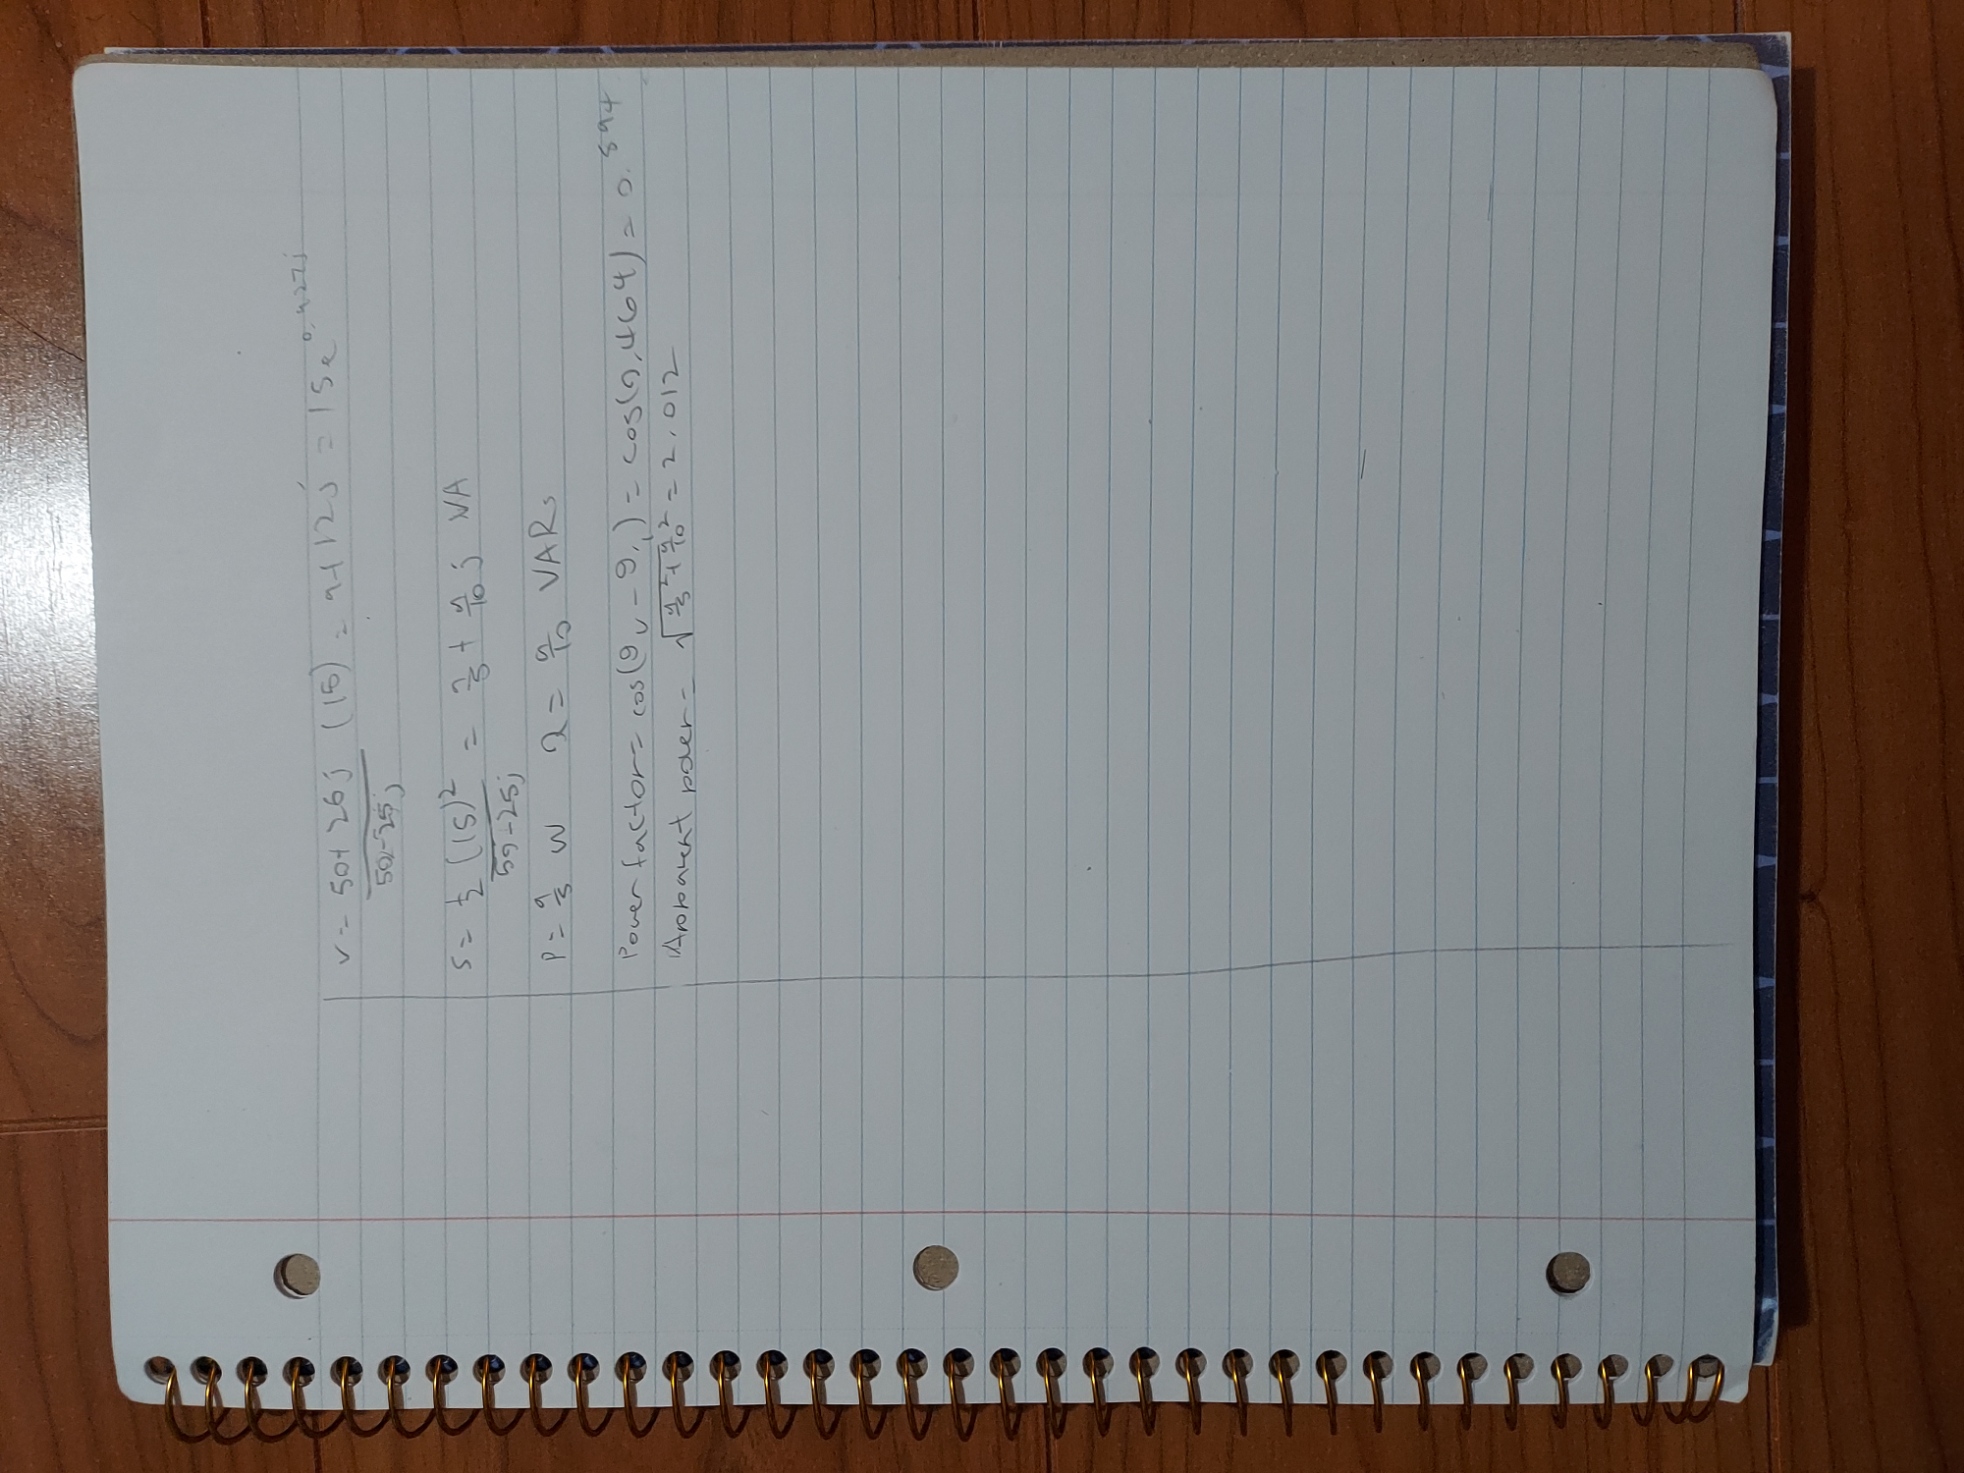 v = 50+25j / 50-25j (15) = 9+12j = 15e^0.927j
S = 1/2 (15)^2 / 50-25j = 9/5 + 9/10 j VA
P = 9/5 W Q = 9/10 VARs
Power factor = cos(θv - θi) = cos(0.464) = 0.894
Apparent poer = √(9/5^2 + 9/10^2) = 2.012